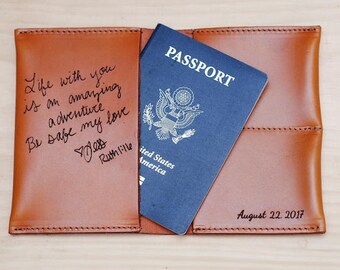 Life with you
is an amazing
adventure
Be safe my love
PASSPORT
United States
of America
August 22, 2017